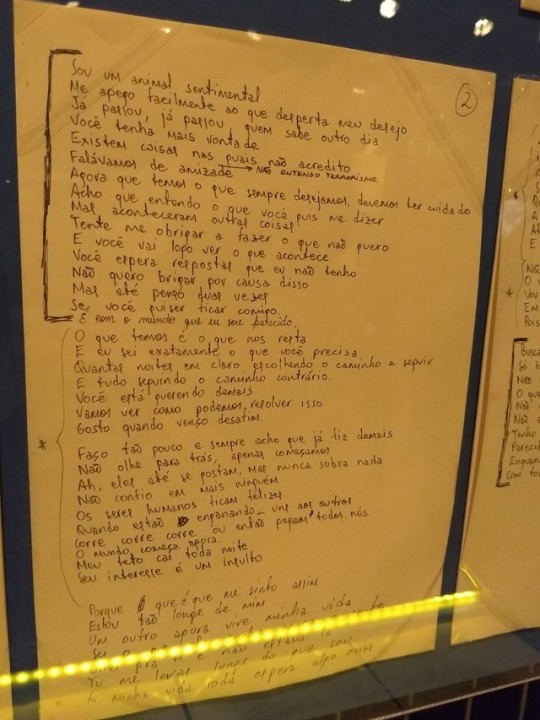 2
Sou um animal sentimental
Me apego facilmente ao que desperta meu desejo
Já passou, já passou quem sabe outro dia
Você tenha mais vontade
Existem coisas nas quais não acredito
Falávamos de amizade → NÃO ENTENDO TERRORISMO.
Agora que temos o que sempre desejamos, devemos ter cuidado
Acho que entendo o que você quis me dizer
Mas aconteceram outras coisas
Tente me obrigar a fazer o que não quero
E você vai logo ver o que acontece
Você espera respostas que eu não tenho
Não quero brigar por causa disso
Mas até penso duas vezes
Se você quiser ficar comigo.
É com o mundo que eu sou parecido.
O que temos é o que nos resta
E eu sei exatamente o que você precisa
Quantas noites em claro escolhendo o caminho a seguir
E tudo seguindo o caminho contrário.
Você está querendo demais
Vamos ver como podemos resolver isso
Gosto quando venço desafios.
*
Faço tão pouco e sempre acho que já fiz demais
Não olhe para trás, apenas começamos
Ah, eles até se gostam, mas nunca sobra nada
Não confio em mais ninguém
Os seres humanos ficam felizes
Quando estão enganando uns aos outros
Corre corre corre ou então pegam todos nós.
O mundo começa agora
Meu teto cai toda noite
Seu interesse é um insulto
Porque é que é que me sinto assim
Estou tão longe de mim
Um outro agora vive minha vida
Sei o
e não estava lá
Tu me levas longe do que sou
A minha vida toda espera algo
*
Não
O
Vou
Em
Pois
Busca
Só
Nas
O que
Não
Não
Tenho
Parecid
Engana
Com